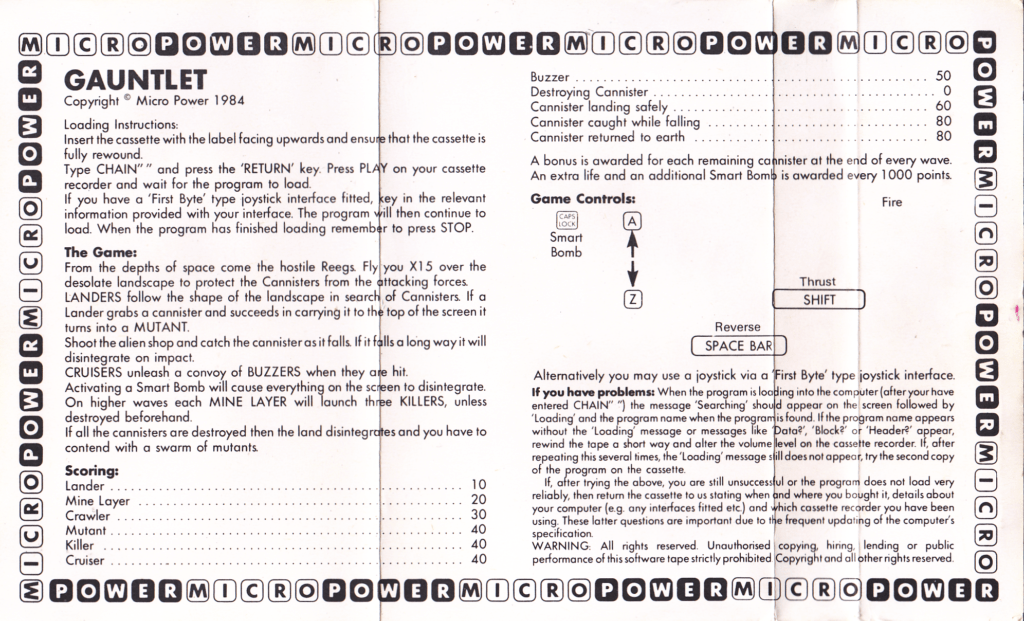 MICROPOWERMICROPOWERMICROPOWERMICROPOWERMICROPOWERMICROPOWERMICROPOWERMICROPOWER
GAUNTLET
Copyright © Micro Power 1984
Loading Instructions:
Insert the cassette with the label facing upwards and ensure that the cassette is
fully rewound.
Type CHAIN"" and press the 'RETURN' key. Press PLAY on your cassette
recorder and wait for the program to load.
If you have a 'First Byte' type joystick interface fitted, key in the relevant
information provided with your interface. The program will then continue to
load. When the program has finished loading remember to press STOP.
The Game:
From the depths of space come the hostile Reegs. Fly you X15 over the
desolate landscape to protect the Cannisters from the attacking forces.
LANDERS follow the shape of the landscape in search of Cannisters. If a
Lander grabs a cannister and succeeds in carrying it to the top of the screen it
turns into a MUTANT.
Shoot the alien shop and catch the cannister as it falls. If it falls a long way it will
disintegrate on impact.
CRUISERS unleash a convoy of BUZZERS when they are hit.
Activating a Smart Bomb will cause everything on the screen to disintegrate.
On higher waves each MINE LAYER will launch three KILLERS, unless
destroyed beforehand.
If all the cannisters are destroyed then the land disintegrates and you have to
contend with a swarm of mutants.
Scoring:
Lander ........ 10
Mine Layer ........ 20
Crawler ........ 30
Mutant ........ 40
Killer ........ 40
Cruiser ........ 40
Buzzer ........ 50
Destroying Cannister ........ 0
Cannister landing safely ........ 60
Cannister caught while falling ........ 80
Cannister returned to earth ........ 80
A bonus is awarded for each remaining cannister at the end of every wave.
An extra life and an additional Smart Bomb is awarded every 1000 points.
Game Controls:
Fire
CAPS
LOCK
A
Smart
Bomb
Z
Thrust
SHIFT
Reverse
SPACE BAR
Alternatively you may use a joystick via a 'First Byte' type joystick interface.
If you have problems: When the program is loading into the computer (after your have
entered CHAIN" ") the message 'Searching' should appear on the screen followed by
'Loading' and the program name when the program is found. If the program name appears
without the 'Loading' message or messages like 'Data?', 'Block?' or 'Header?' appear,
rewind the tape a short way and alter the volume level on the cassette recorder. If, after
repeating this several times, the 'Loading' message still does not appear, try the second copy
of the program on the cassette.
If, after trying the above, you are still unsuccessful or the program does not load very
reliably, then return the cassette to us stating when and where you bought it, details about
your computer (e.g. any interfaces fitted etc.) and which cassette recorder you have been
using. These latter questions are important due to the frequent updating of the computer's
specification.
WARNING: All rights reserved. Unauthorised copying, hiring, lending or public
performance of this software tape strictly prohibited. Copyright and all other rights reserved.